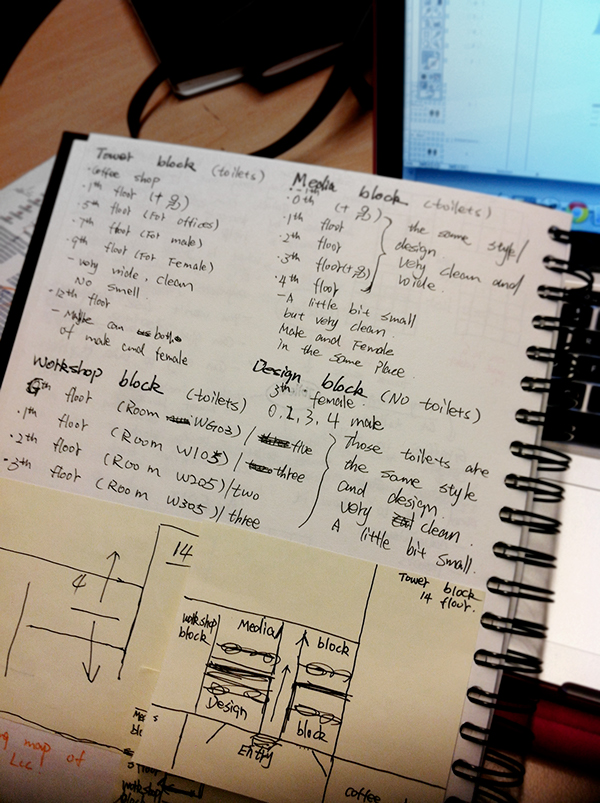 Tower block (toilets)
· Coffee shop
· 1th floor (+
· 5th floor (For offices)
· 7th floor (For male)
· 9th floor (For Female)
- very wide, clean
No smell.
· 12th floor
can both
of male and female
Media block (toilets)
· 0th (+
· 1th floor
· 2th floor
· 3th floor (+
· 4th floor
the same style/
design
very clean and
wide.
- A little bit small
but very clean.
Male and Female
in the same place.
Workshop block (toilets)
Gth floor (Room WG03) / five
· 1th floor (Room W105) / three
· 2th floor (Room W205) / two
· 3th floor (Room W305) / three
Design block (No toilets)
3th female.
0, 1, 3, 4 male
Those toilets are
the same style
and design.
very clean.
A little bit small.
4
14
Tower block
14 floor.
workshop
block
Media block
Design block
Entry
coffee
map of
LCC